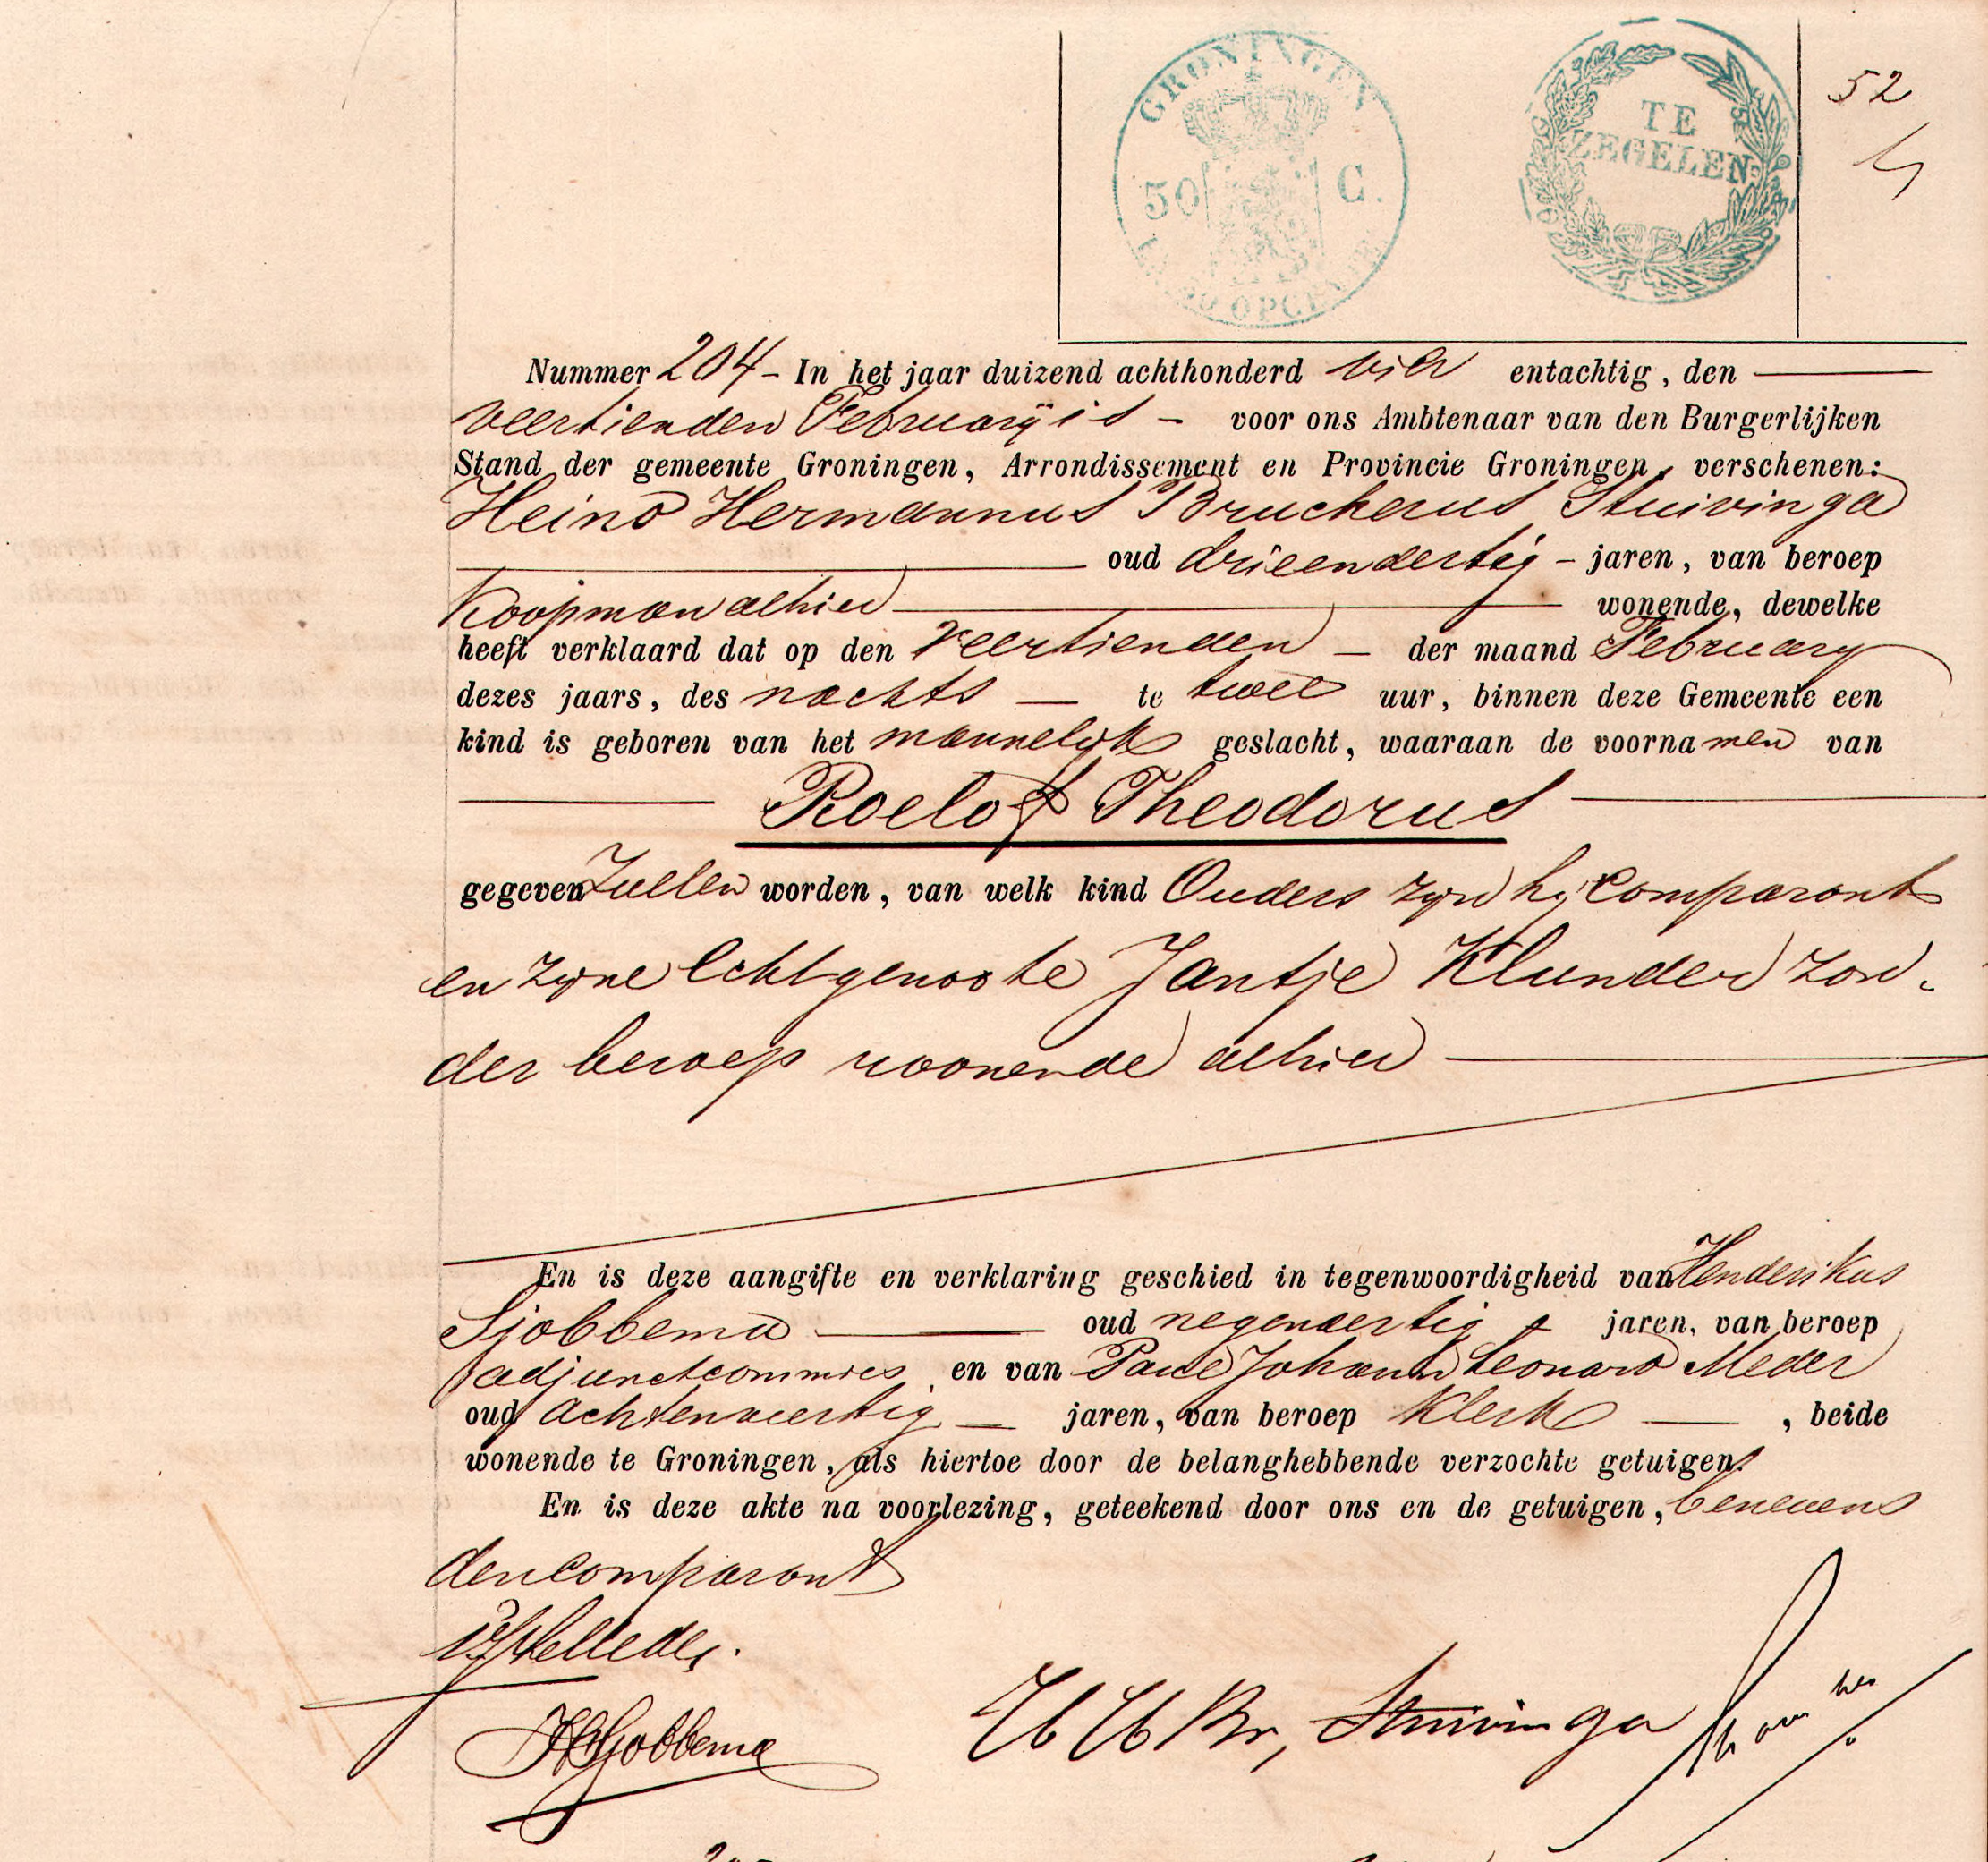 GRONINGEN
50 C.
OPC
TE
ZEGELEN
52
Nummer 204 - In het jaar duizend achthonderd vier entachtig, den
veertienden Februarij is - voor ons Ambtenaar van den Burgerlijken
Stand der gemeente Groningen, Arrondissement en Provincie Groningen, verschenen:
Heino Hermannus Brucherus Stuivinga
oud drieendertig - jaren, van beroep
Koopman alhier wonende, dewelke
heeft verklaard dat op den veertienden - der maand February
dezes jaars, des nachts - te twee uur, binnen deze Gemeente een
kind is geboren van het mannelijk geslacht, waaraan de voornamen van
Roelof Theodorus
gegeven Zullen worden, van welk kind Ouders zijn hij Comparant
en zijne Echtgenoote Jantje Klunder zon-
der beroep woonende alhier
En is deze aangifte en verklaring geschied in tegenwoordigheid van Henderikus
Sjobbema oud negendertig jaren, van beroep
adjunctcommies, en van Paul Johann Leonard Meder
oud achtenveertig - jaren, van beroep Klerk, beide
wonende te Groningen, als hiertoe door de belanghebbende verzochte getuigen.
En is deze akte na voorlezing, geteekend door ons en de getuigen, benevens
den Comparant
HSjobbema
H H Br, Stuivinga